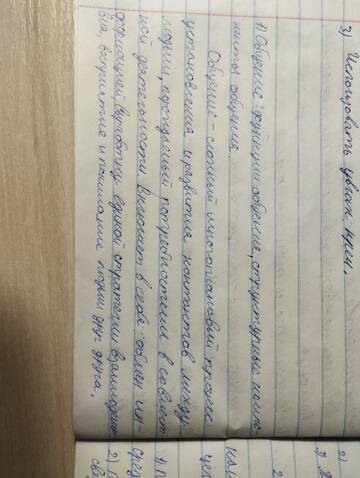 3) Использовать увлек. прием.
1) Общение: функции общения, структурные компо-
ненты общения.
Общение – сложный многоплановый процесс
установления и развития контактов между
людьми, порождаемый потребностями в совмест-
ной деятельности включает в себя: обмен ин-
формацией выработку единой стратегии взаимодейст-
вия, восприятие и понимание людьми друг друга.
2)